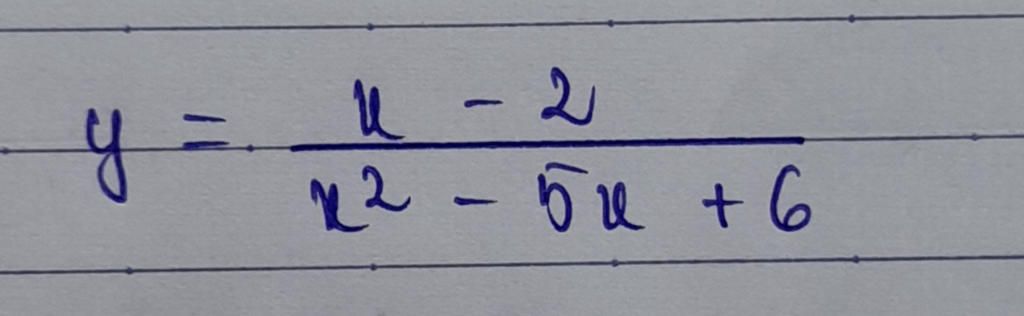 y = x - 2 / x² - 5x + 6